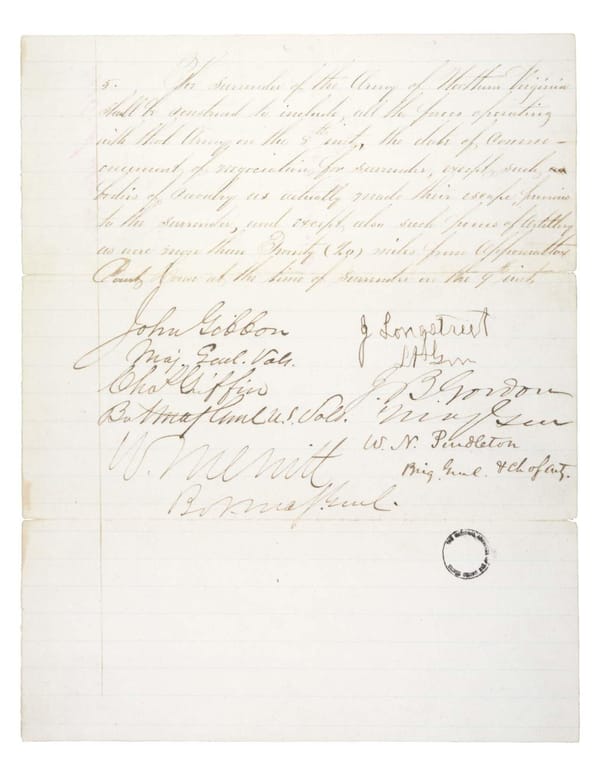 5. The surrender of the Army of Northern Virginia
shall be construed to include, all the forces operating
with that Army, on the 8th inst., the date of commen-
cement, of negociation, for surrender, except, such,
bodies of Cavalry as actually made their escape previous
to the surrender, and except, also such forces of Artillery
as were more than Twenty (20) miles from Appomattox
Court House at the time of surrender on the 9th inst.
John Gibbon
Maj. Genl. Vols.
Chas Griffin
Bvt Maj Genl U.S. Vols.
W. Merritt
Bvt Maj Genl.
J Longstreet
Lt Gen
J. B Gordon
Maj Gen
W. N. Pendleton
Brig. Genl. & Ch of Arty.